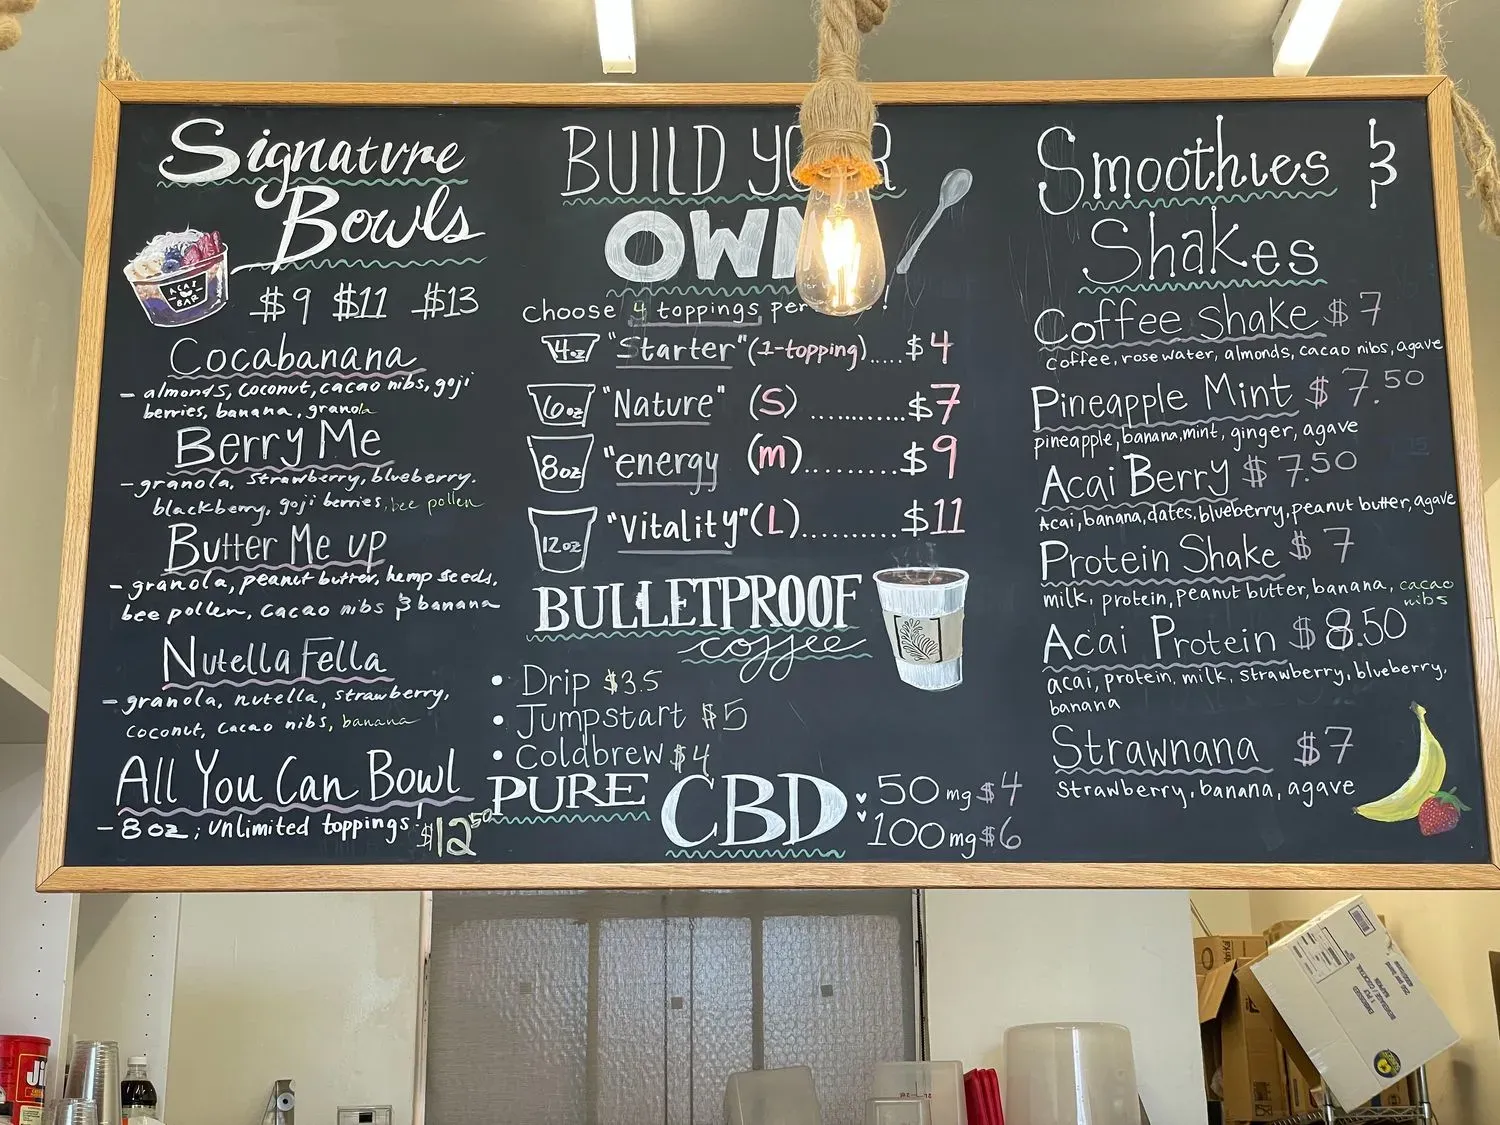 Signature
Bowls
ACAI
BAR
$9 $11 $13
Cocabanana
- almonds, coconut, cacao nibs, goji
berries, banana, granola
Berry Me
- granola, strawberry, blueberry.
blackberry, goji berries, bee pollen
Butter Me up
- granola, peanut butter, hemp seeds,
bee pollen, cacao nibs & banana
Nutella Fella
- granola, nutella, strawberry,
coconut, cacao nibs, banana
All You Can Bowl
- 8oz; Unlimited toppings! $12.50
BUILD YOUR
OWN
choose 4 toppings per !
4oz "Starter" (1-topping).....$4
6oz "Nature" (S) ...........$7
8oz "energy (m)..........$9
12oz "Vitality" (L)...........$11
BULLETPROOF
coffee
• Drip $3.5
• Jumpstart $5
• Coldbrew $4
PURE CBD
50mg $4
100mg $6
Smoothies &
Shakes
Coffee Shake $7
coffee, rosewater, almonds, cacao nibs, agave
Pineapple Mint $7.50
pineapple, banana, mint, ginger, agave
Acai Berry $7.50
Acai, banana, dates, blueberry, peanut butter, agave
Protein Shake $7
milk, protein, peanut butter, banana, cacao
nibs
Acai Protein $8.50
acai, protein, milk, strawberry, blueberry,
banana
Strawnana $7
Strawberry, banana, agave